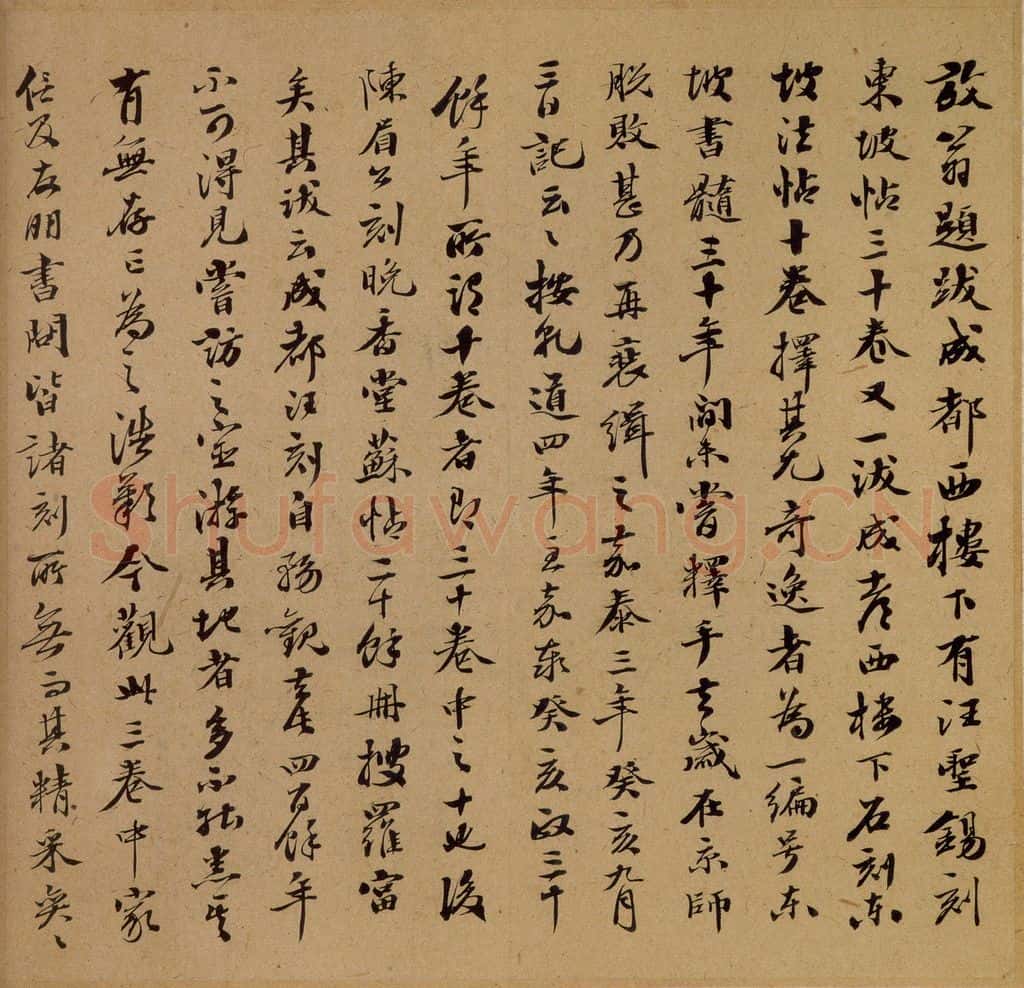 放翁題跋成都西樓下有汪聖錫刻
東坡帖三十卷又一跋成老西樓下石刻東
坡法帖十卷擇其尤奇逸者為一編号東
坡書髓三十年間未嘗釋手去歲在京師
脫敗甚乃再裝緝之嘉泰三年癸亥九月
三日記云〻按乾道四年至嘉泰癸亥政三十
餘年所謂十卷者即三十卷中之十也後
陳眉公刻晚香堂蘇帖二十餘冊搜羅富
矣其跋云成都汪刻自務觀去今四百餘年
不可得見嘗訪之宦游其地者多不能悉其
有無存亡為之浩歎今觀此三卷中家
任及友朋書問皆諸刻所無而其精采奕〻
Shufawang.CN